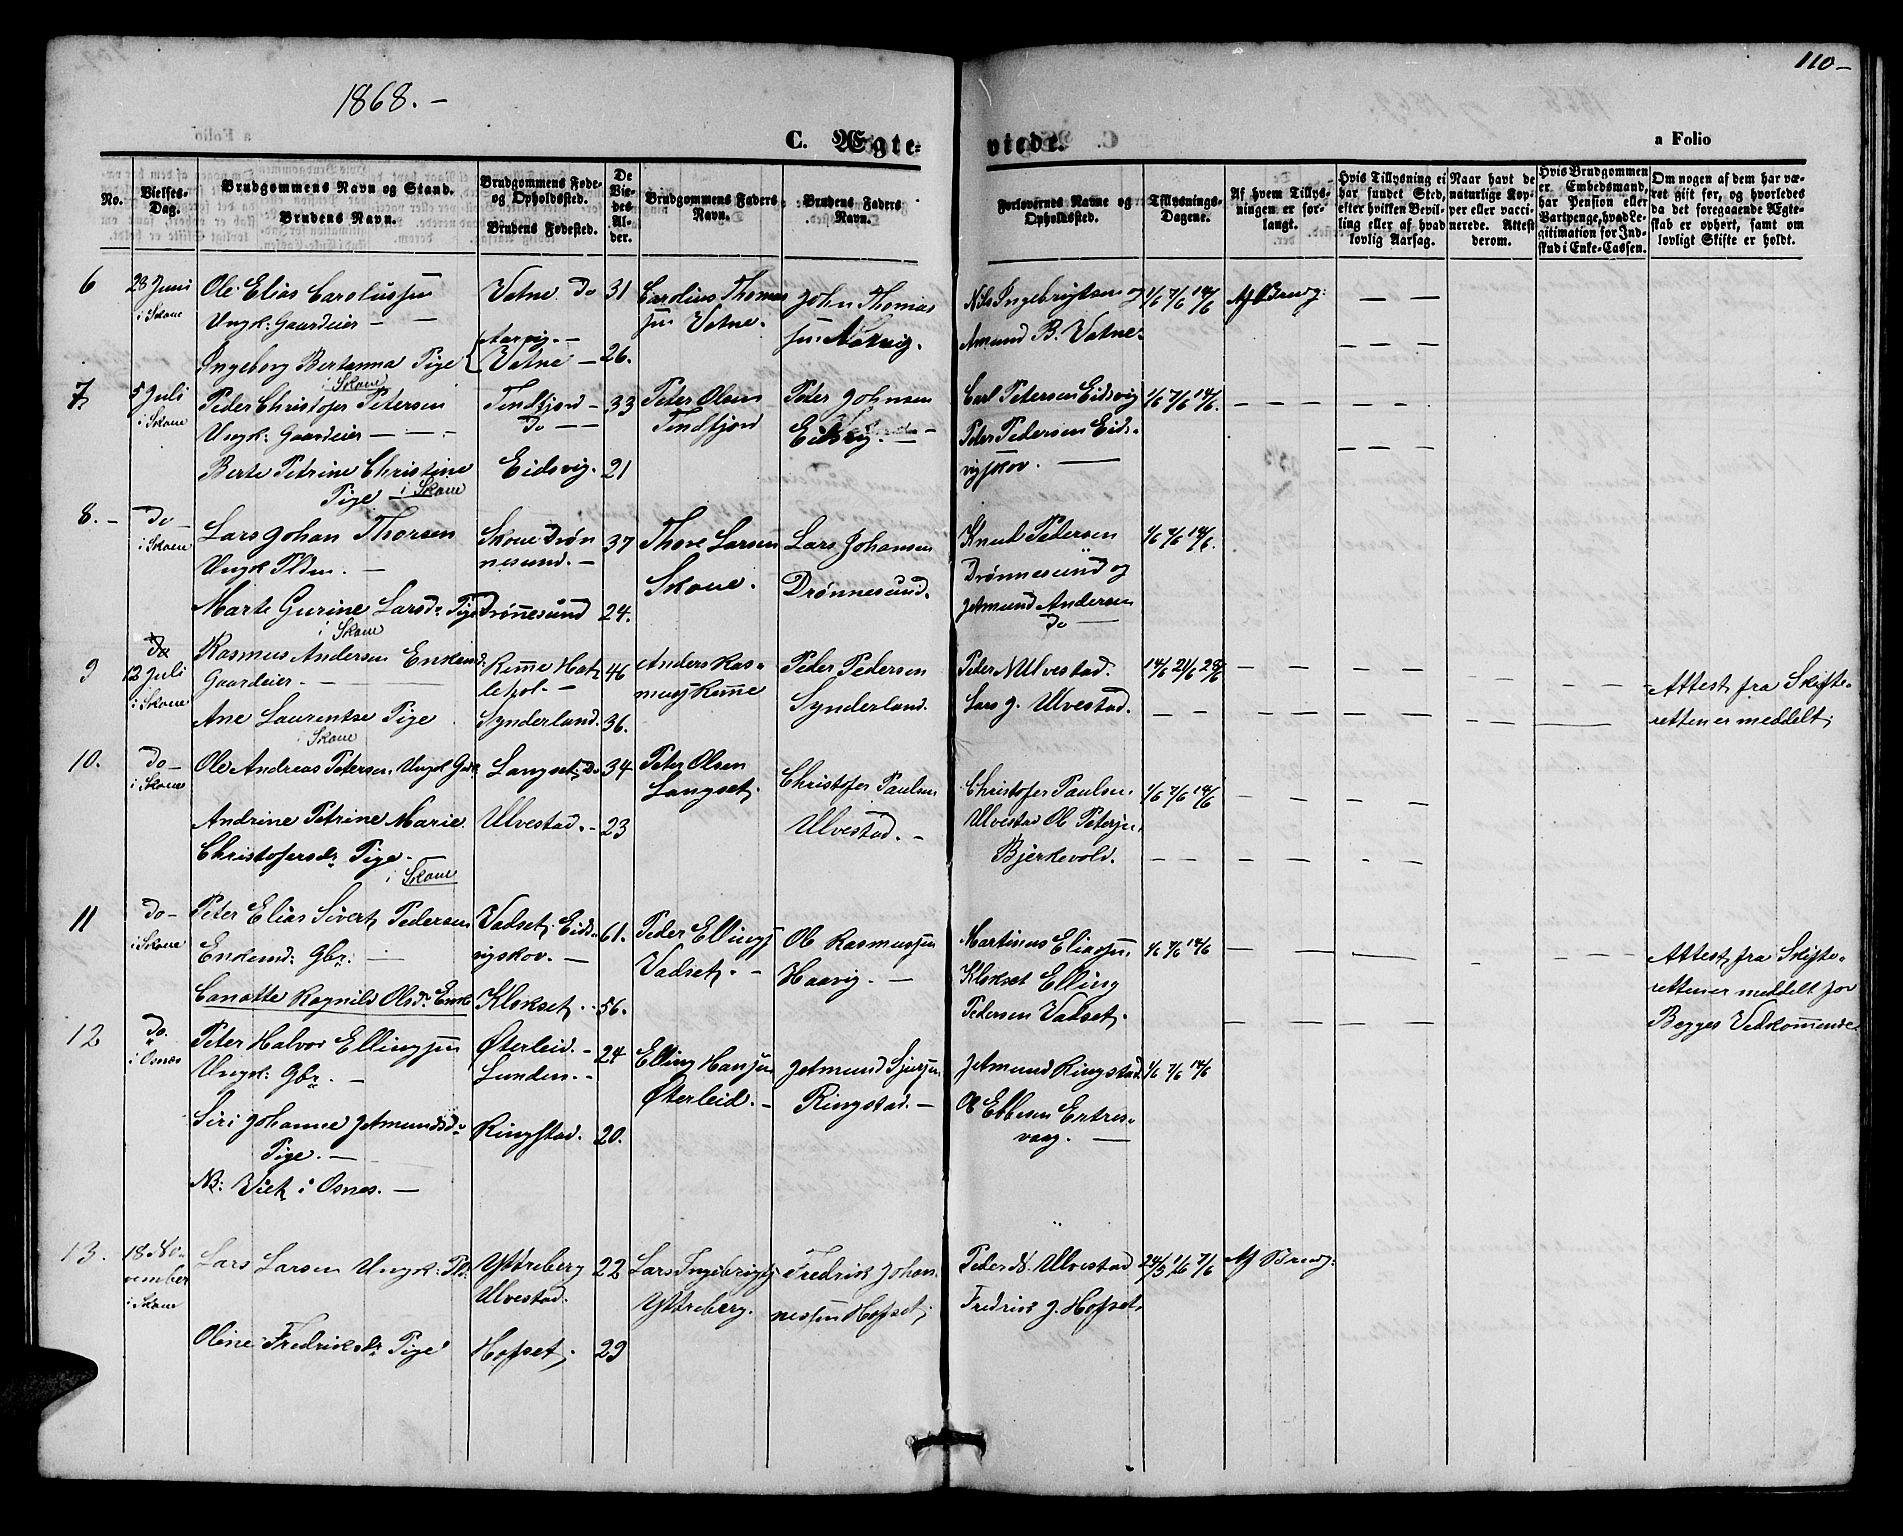 1868.-
110-
C. Ægte-
viede.
a Folio
No.
Vielses-
Dag.
Brudgommens Navn og Stand.
Brudens Navn.
Brudgommens Føde-
og Opholdssted.
Brudens Fødested.
De
Vie-
des
Al-
der.
Brudgommens Faders
Navn.
Brudens Faders
Navn.
Forlovernes Navne og
Opholdssted.
Tillysnings-
Dagene.
Af hvem Tillys-
ningen er for-
langt.
Hvis Tillysning ei
har fundet Sted,
efter hvilken Bevil-
ling eller af hvad
lovlig Aarsag.
Naar havt de
naturlige Kop-
per eller vacci-
nerede. Attest
derom.
Hvis Brudgommen
er Embedsmand,
har Pension eller
Vartpenge, hvad Le-
gitimation for Ind-
skud i Enke-Cassen.
Om nogen af dem har væ-
ret gift før, og hvorledes
da det foregaaende Ægte-
skab er ophørt, samt om
lovligt Skifte er holdt.
6
28 Juni
i Skoue
Ole Elias Carolussøn
Ungk: Gaardeier — —
Ingeborg Bertanna Pige
i Skoue
Vatne Do
Aarvig. —
Vatne —
31
26.
Carolus Thomas
søn Vatne.
John Thomas
søn Aarvig.
Nils Ingebrigtsen og
Amund B. Vatne
1/6 7/6 14/6
Af Brudg:
7.
5 Juli
i Skoue
Peder Christofer Petersen
Ungk: Gaardeier — — —
Berte Petrine Christine
Pige i Skoue
Tindfjord —
Do — —
Eidsvig.
33
21
Peter Olsen
Tindfjord
Peter Johnsen
Eidsvig. —
Carl Petersen Eidsvig
Peter Pedersen Eids-
vigskov. —
1/6 7/6 14/6.
8. -
Do -
i Skoue
Lars Johan Thorsen
Ungk. Pldm. —
Marte Gurine Larsdr Pige
i Skoue
Skoue Drøn
nesund. —
Drønnesund
37
24.
Thore Larsen
Skoue.
Lars Johansen
Drønnesund.
Knud Pedersen
Drønnesund og
Jetmund Andersen
Do —
1/6 7/6 14/6.
9
12 Juli
i Skoue
Rasmus Andersen Enkemd:
Gaardeier. —
Ane Laurentse Pige
i Skoue
Remme Hat
lehol. —
Synderland.
46
36.
Anders Ras-
musj Remme
Peder Pedersen
Synderland.
Peter N Ulvestad.
Lars J. Ulvestad.
14/6 21/6 28/6
Attest fra Skifte-
retten er meddelt.
10.
Do -
i Skoue
Ole Andreas Petersen, Ungk Gbr
Andrine Petrine Marie
Christofersdr Pige.
i Skoue
Langset, Do
Ulvestad. -
34
23
Peter Olsen
Langset.
Christofer Paulsen
Ulvestad. —
Christofer Paulsen.
Ulvestad Ol Petersjn,
Bjerkevold.
1/6 7/6 14/6
11
Do -
i Skoue
Peter Elias Sivert Pedersen
Enkemd: Gbr: —
Canatte Ragnild Olsdr Enke
Vadset. Eids-
vigskov. —
Klokset.
61.
56.
Peder Ellingsj
Vadset. -
Ole Rasmussjn
Haavig. —
Martinus Eliassjn,
Klokset Elling
Pedersen Vadset.
1/6 7/6 14/6
Attest fra Skifte-
retten er meddelt for
Begges Vedkommende
12
Do.
i Osnes
Peter Halvor Ellingsjn
Ungk: Gbr. —
Siri Johanne Jetmundsdr
Pige. —
NB: Viet i Osnes. —
Østerleid. -
Lunden. -
Ringstad.
24
20.
Elling Hansjn
Østerleid. -
Jetmund Sjursjn
Ringstad. —
Jetmund Ringstad.
Ol Ebbesen Ertres-
vaag. —
1/6 7/6 14/6
13.
18 No-
vember
i Skoue
Lars Larsen Ungk: Pl:
Oline Fredriksdr Pige
Yttreberg
Ulvestad.
Hofset.
22
29
Lars Ingebrigtsj
Yttreberg.
Fredrik Johan-
nessjn Hofset.
Peder N. Ulvestad
Fredrik J. Hofset.
24/5 1/6 7/6
Af Brudg: